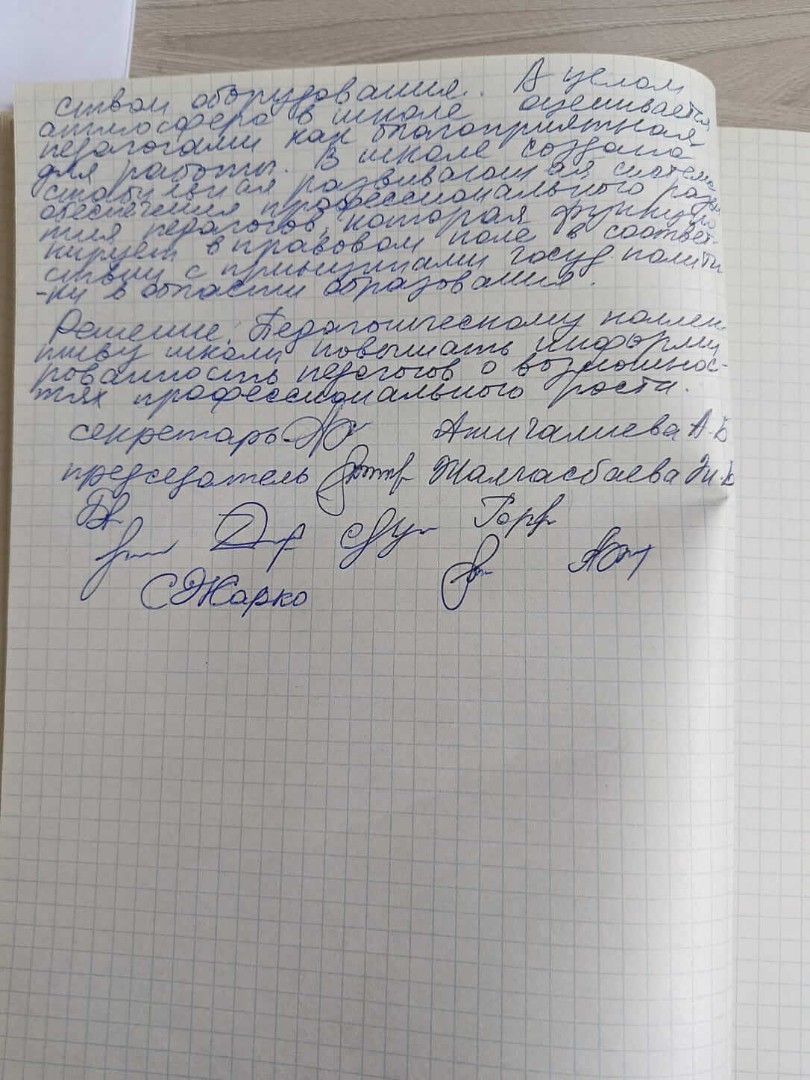 ством оборудования. В целом
атмосфера в школе оценивается
педагогами как благоприятная
для работы. В школе создана
стабильная развивающая система
обеспечения профессионального разви
тия педагогов, которая функцио
нирует в правовом поле в соответ-
ствии с принципами госуд полити
-ки в области образования.
Решение: Педагогическому коллек
тиву школы повышать информи
рованность педагогов о возможнос-
тях профессионального роста.
секретарь Ажигалиева А.Б
председатель Жалгасбаева Ж.Б
СЖарко